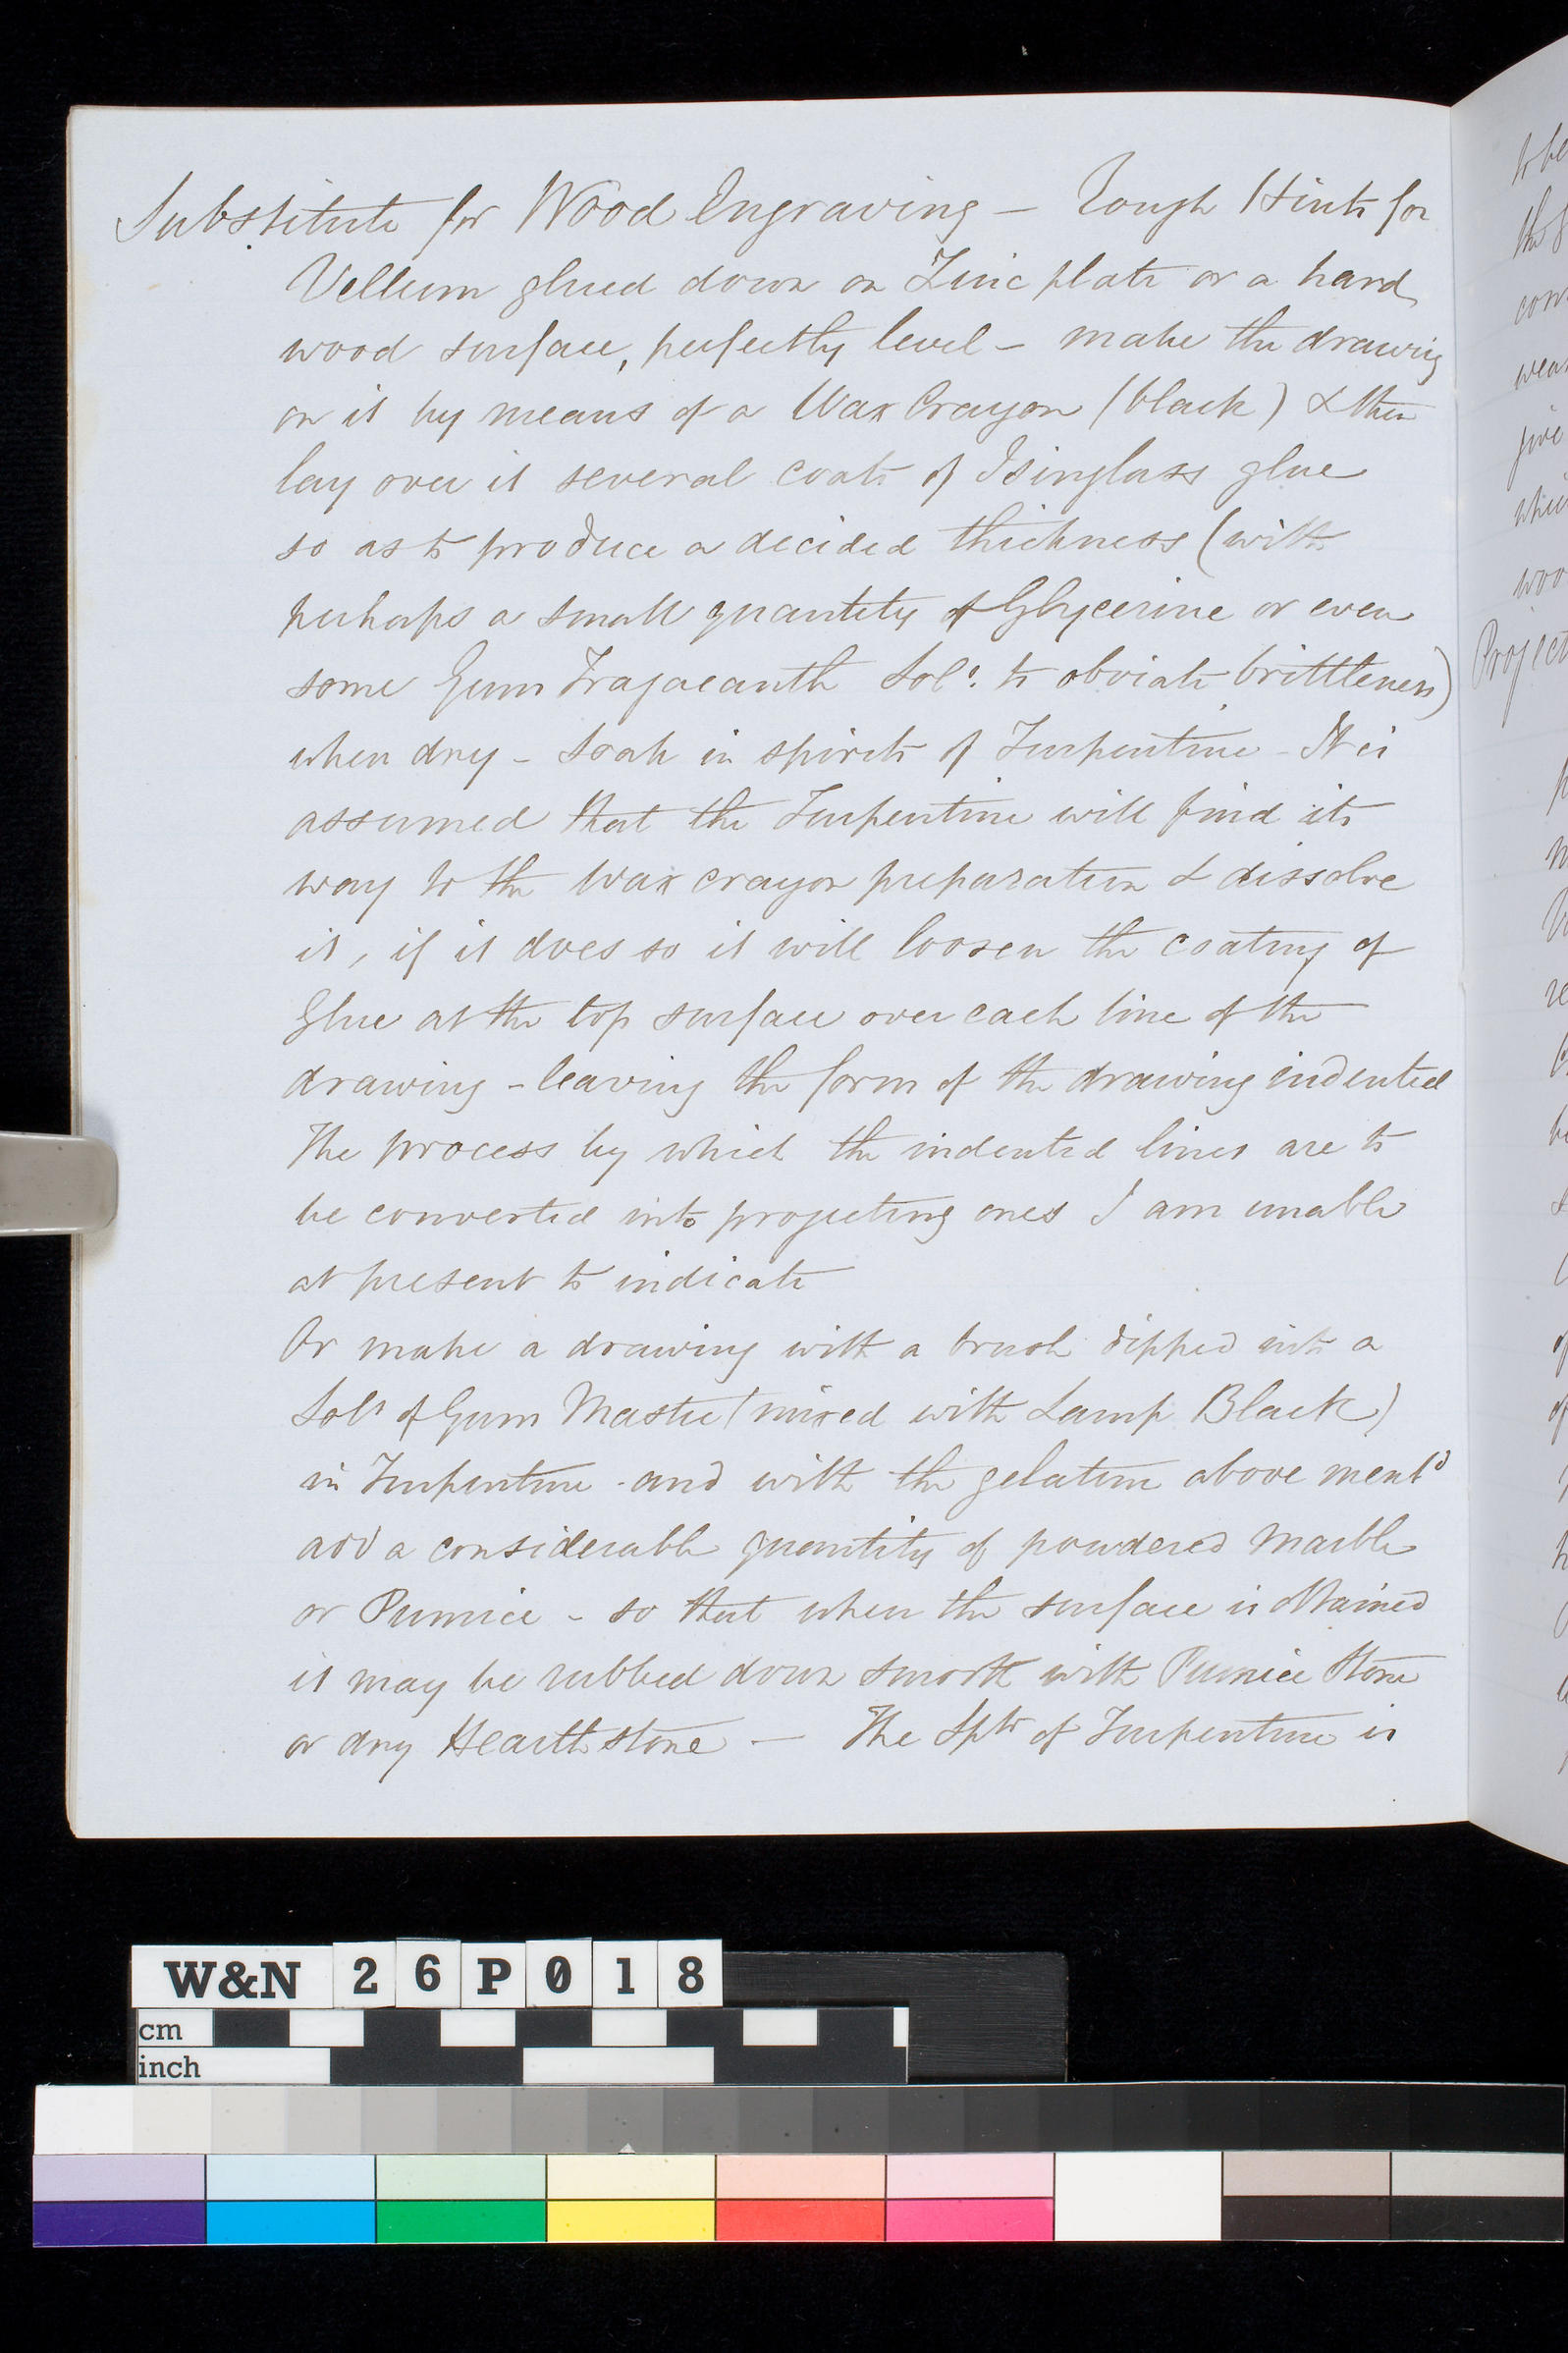 Substitute for Wood Engraving – Rough Hints for
Vellum glued down on Zinc plate or a hard
wood surface, perfectly level – make the drawing
on it by means of a Wax Crayon (black) & then
lay over it several coats of Isinglass glue
so as to produce a decided thickness (with
perhaps a small quantity of Glycerine or even
some Gum Tragacanth Solⁿ. to obviate brittleness)
when dry – Soak in spirits of Turpentine – It is
assumed that the Turpentine will find its
way to the Wax crayon preparation & dissolve
it, if it does so it will loosen the coating of
Glue at the top surface over each line of the
drawing – leaving the form of the drawing indented
The process by which the indented lines are to
be converted into projecting ones I am unable
at present to indicate
Or make a drawing with a brush dipped into a
Solⁿ of Gum Mastic (mixed with Lamp Black)
in Turpentine – and with the gelatine above mentᵈ
add a considerable quantity of powdered Marble
or Pumice – so that when the surface is obtained
it may be rubbed down smooth with Pumice Stone
or dry Hearthstone — The Spts of Turpentine is
Project
W&N 26P018
cm
inch